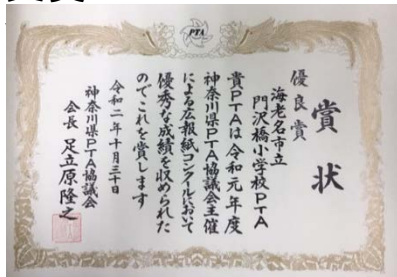 PTA
賞状
優良賞
海老名市立
門沢橋小学校PTA
貴PTAは令和元年度
神奈川県PTA協議会主催
による広報紙コンクールにおいて
優秀な成績を収められた
のでこれを賞します
令和二年十月三十日
神奈川県PTA協議会
会長 足立原隆之